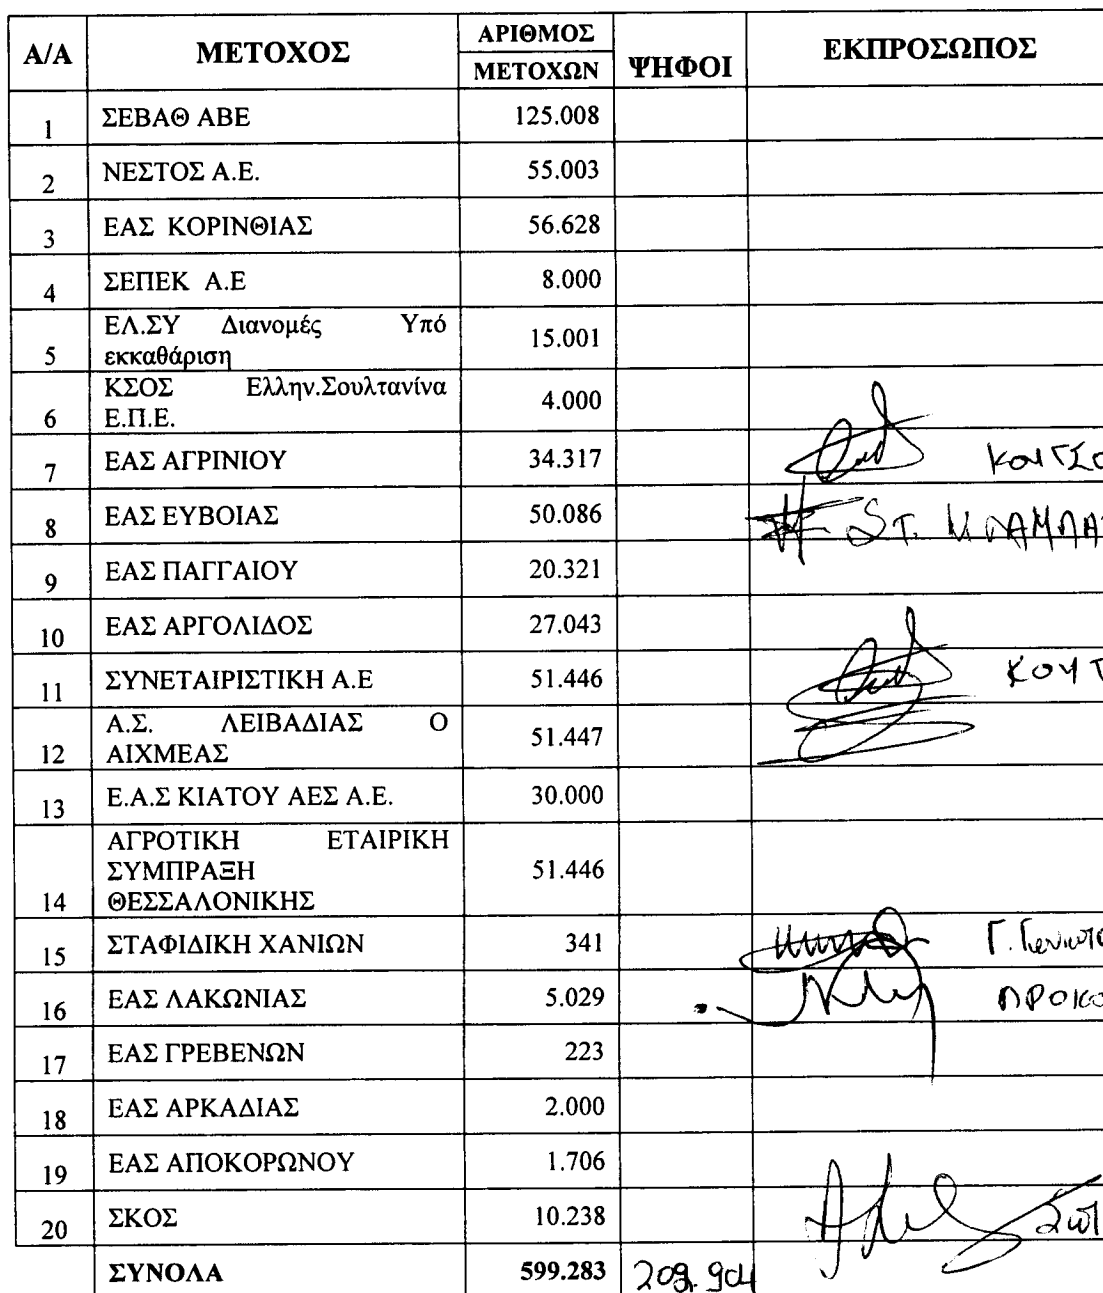 Α/Α ΜΕΤΟΧΟΣ ΑΡΙΘΜΟΣ ΜΕΤΟΧΩΝ ΨΗΦΟΙ ΕΚΠΡΟΣΩΠΟΣ
1 ΣΕΒΑΘ ΑΒΕ 125.008
2 ΝΕΣΤΟΣ Α.Ε. 55.003
3 ΕΑΣ ΚΟΡΙΝΘΙΑΣ 56.628
4 ΣΕΠΕΚ Α.Ε 8.000
5 ΕΛ.ΣΥ Διανομές Υπό
εκκαθάριση 15.001
6 ΚΣΟΣ Ελλην.Σουλτανίνα
Ε.Π.Ε. 4.000
7 ΕΑΣ ΑΓΡΙΝΙΟΥ 34.317
8 ΕΑΣ ΕΥΒΟΙΑΣ 50.086
9 ΕΑΣ ΠΑΓΓΑΙΟΥ 20.321
10 ΕΑΣ ΑΡΓΟΛΙΔΟΣ 27.043
11 ΣΥΝΕΤΑΙΡΙΣΤΙΚΗ Α.Ε 51.446 ΚΟΥΤ
12 Α.Σ. ΛΕΙΒΑΔΙΑΣ Ο
ΑΙΧΜΕΑΣ 51.447
13 Ε.Α.Σ ΚΙΑΤΟΥ ΑΕΣ Α.Ε. 30.000
14 ΑΓΡΟΤΙΚΗ ΕΤΑΙΡΙΚΗ
ΣΥΜΠΡΑΞΗ
ΘΕΣΣΑΛΟΝΙΚΗΣ 51.446
15 ΣΤΑΦΙΔΙΚΗ ΧΑΝΙΩΝ 341 Γ.
16 ΕΑΣ ΛΑΚΩΝΙΑΣ 5.029 ΠΡΟΚΟ
17 ΕΑΣ ΓΡΕΒΕΝΩΝ 223
18 ΕΑΣ ΑΡΚΑΔΙΑΣ 2.000
19 ΕΑΣ ΑΠΟΚΟΡΩΝΟΥ 1.706
20 ΣΚΟΣ 10.238
ΣΥΝΟΛΑ 599.283 209.904